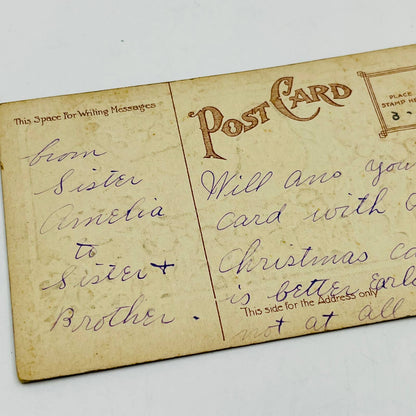 This Space For Writing Messages
from
Sister
Amelia
to
Sister +
Brother.
POST CARD
PLACE
STAMP HE
Will ans you
card with
Christmas ca
is better
This side for the Address only
not at all